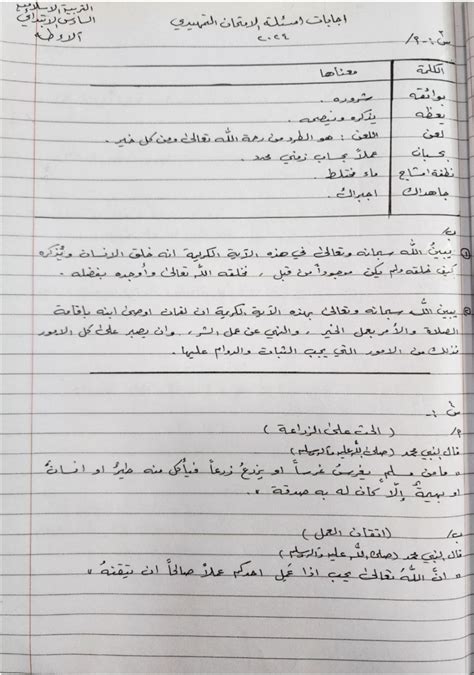 التربية الاسلامية
اجابات اسئلة الامتحان التمهيدي
السادس الابتدائي
٢٠٢٤
س١:- ٢/
الكلمة معناها
بوائقه شروره .
يعظه يذكره وينصحه .
لعن اللعن : هو الطرد من رحمة الله تعالى ومن كل خير .
بحسبان عملاً بحساب زمني محدد .
نطفة امشاج ماء مختلط .
جاهداك اجبراك .
ب/
① يبين الله سبحانه وتعالى في هذه الآية الكريمة انه خلق الانسان ويُذكره
كيف خلقه ولم يكن موجوداً من قبل , فخلقه الله تعالى وأوجده بفضله .
يبين الله سبحانه وتعالى بهذه الآية الكريمة ان لقمان اوصى ابنه بإقامة
الصلاة والأمر بعمل الخير , والنهي عن عمل الشر , وان يصبر على كل الامور
فذلك من الامور التي يجب الثبات والدوام عليها .
٢/ ( الحث على الزراعة )
قال النبي محمد (صلى الله عليه واله وسلم)
" مامن مسلم يغرس غرساً او يزرع زرعاً فيأكل منه طيرٌ او انسانٌ
او بهيمةٌ إلّا كان له به صدقة " .
ب/ ( اتقان العمل )
قال النبي محمد (صلى الله عليه واله وسلم)
" انَّ اللهَ تعالى يحب اذا عَمِل احدكم عملاً صالحاً ان يتقنهُ "